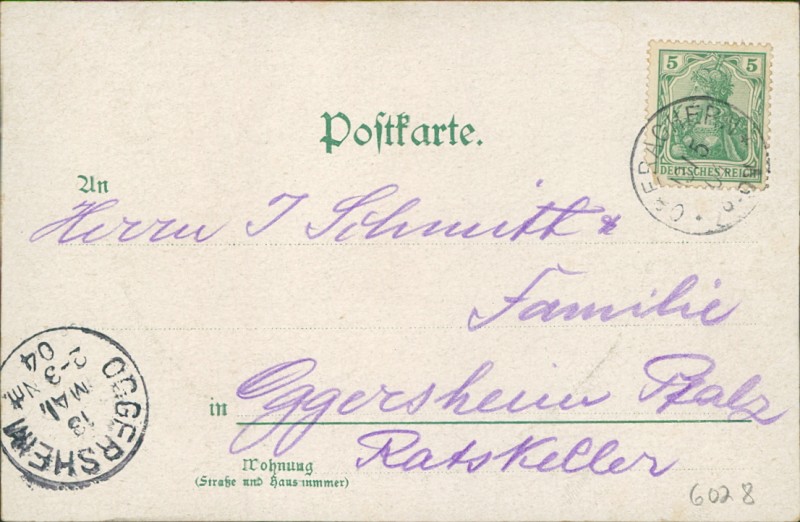 5 5
DEUTSCHES REICH
OBERACHERN
Postkarte.
An
Herrn J Schmitt &
Familie
in Oggersheim Pfalz
Ratskeller
Wohnung
(Straße und Hausnummer)
OGGERSHEIM
13
MAI
2-3 Nm
04
6028